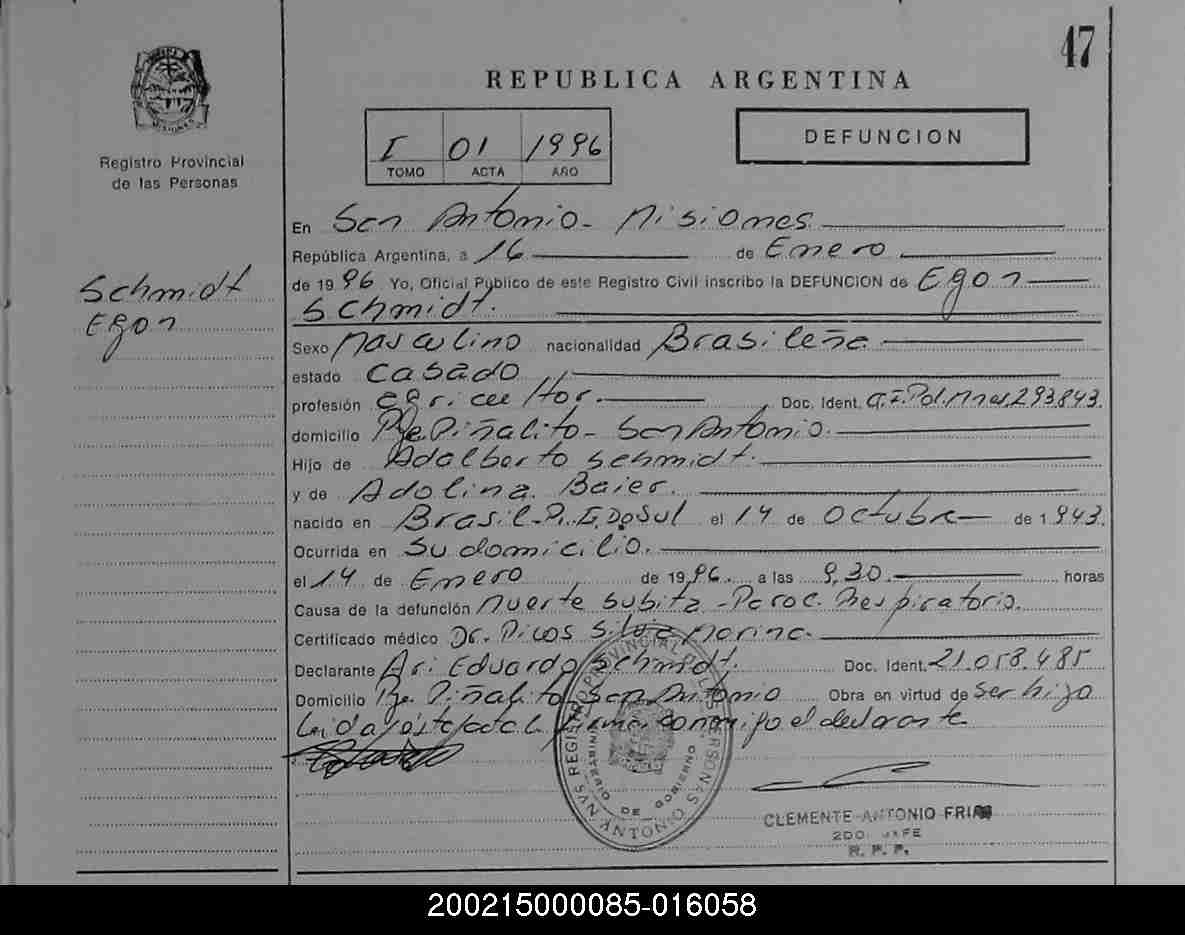 47
REPUBLICA ARGENTINA
MISIONES
Registro Provincial
de las Personas
I 01 1996
TOMO ACTA AÑO
DEFUNCION
Schmidt
Egon
En San Antonio - Misiones
República Argentina, a 16 de Enero
de 1996 Yo, Oficial Público de este Registro Civil inscribo la DEFUNCION de Egon
Schmidt.
Sexo Masculino nacionalidad Brasileña
estado Casado
profesión agricultor. Doc. Ident. 293.843.
domicilio Pje. Piñalito - San Antonio.
Hijo de Adalberto Schmidt.
y de Adolina Baier.
nacido en Brasil - Do Sul el 14 de Octubre de 1943.
Ocurrida en su domicilio.
el 14 de Enero de 1996. a las 9,30. horas
Causa de la defunción Muerte subita - Paroc. Respiratorio.
Certificado médico Dr. Silvia Marina.
Declarante Ari Eduardo Schmidt. Doc. Ident. 21.058.485
Domicilio Pje. Piñalito San Antonio Obra en virtud de ser hijo
Leida firma conmigo el declarante
REGISTRO PROVINCIAL DE LAS PERSONAS
MINISTERIO DE GOBIERNO
SAN ANTONIO MNES
CLEMENTE ANTONIO
2DO. JEFE
R. P. P.
200215000085-016058